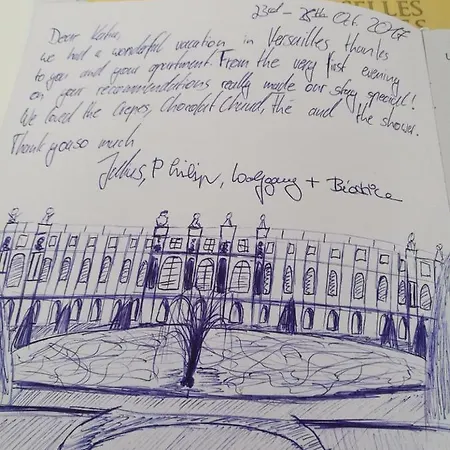 ELLES
23rd - 28th Oct. 2017
Dear Katia,
we had a wonderful vacation in Versailles, thanks
to you and your apartment. From the very first evening
on your recommendations really made our stay special!
We loved the Crepes, Chocolat Chaud, thé and the shower.
Thank you so much
Julius, Philipp, Wolfgang + Beatrice